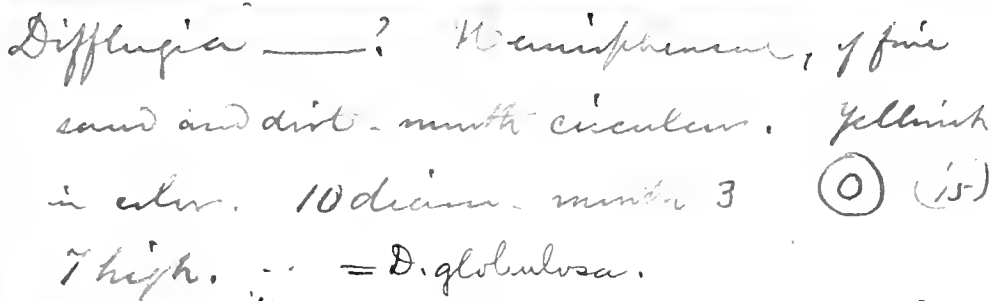 Difflugia ——? Hemispherical, of fine
sand and dirt - mouth circular. Yellowish
in color. 10 diam - mouth 3 (15)
7 high. = D. globulosa.